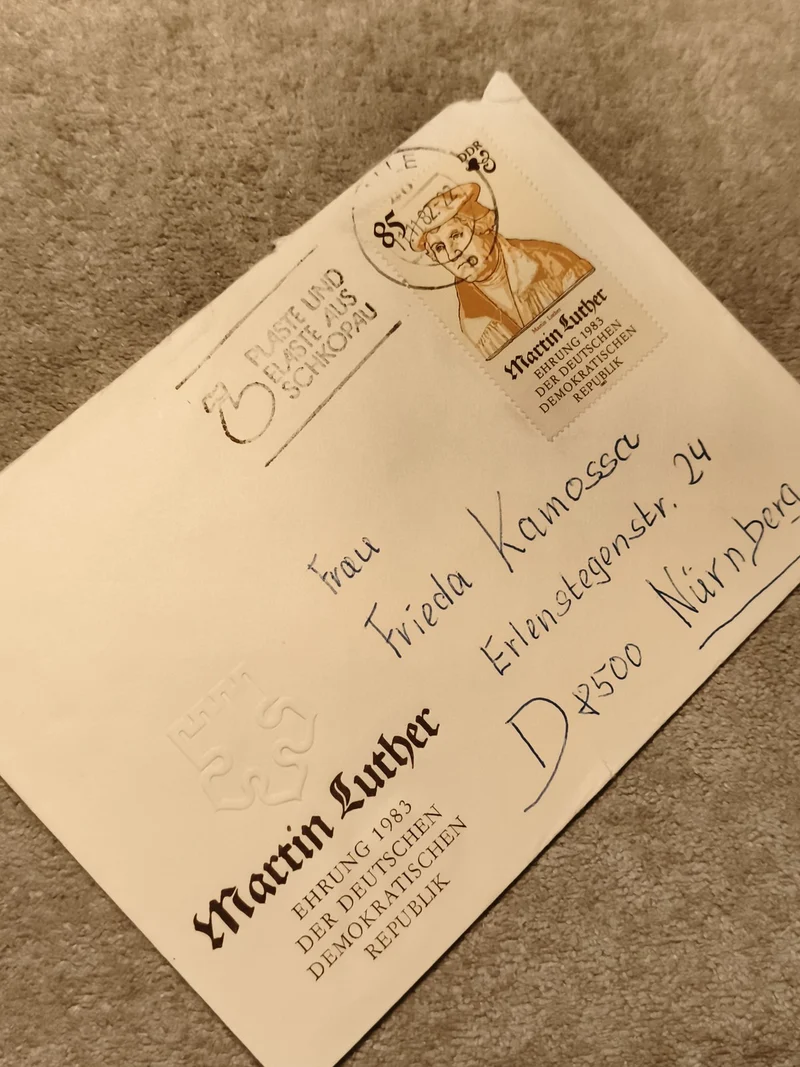 DDR
85
Martin Luther
Martin Luther
EHRUNG 1983
DER DEUTSCHEN
DEMOKRATISCHEN
REPUBLIK
PLASTE UND
ELASTE AUS
SCHKOPAU
Frau
Frieda Kamossa
Erlenstegenstr. 24
D 8500 Nürnberg
Martin Luther
EHRUNG 1983
DER DEUTSCHEN
DEMOKRATISCHEN
REPUBLIK